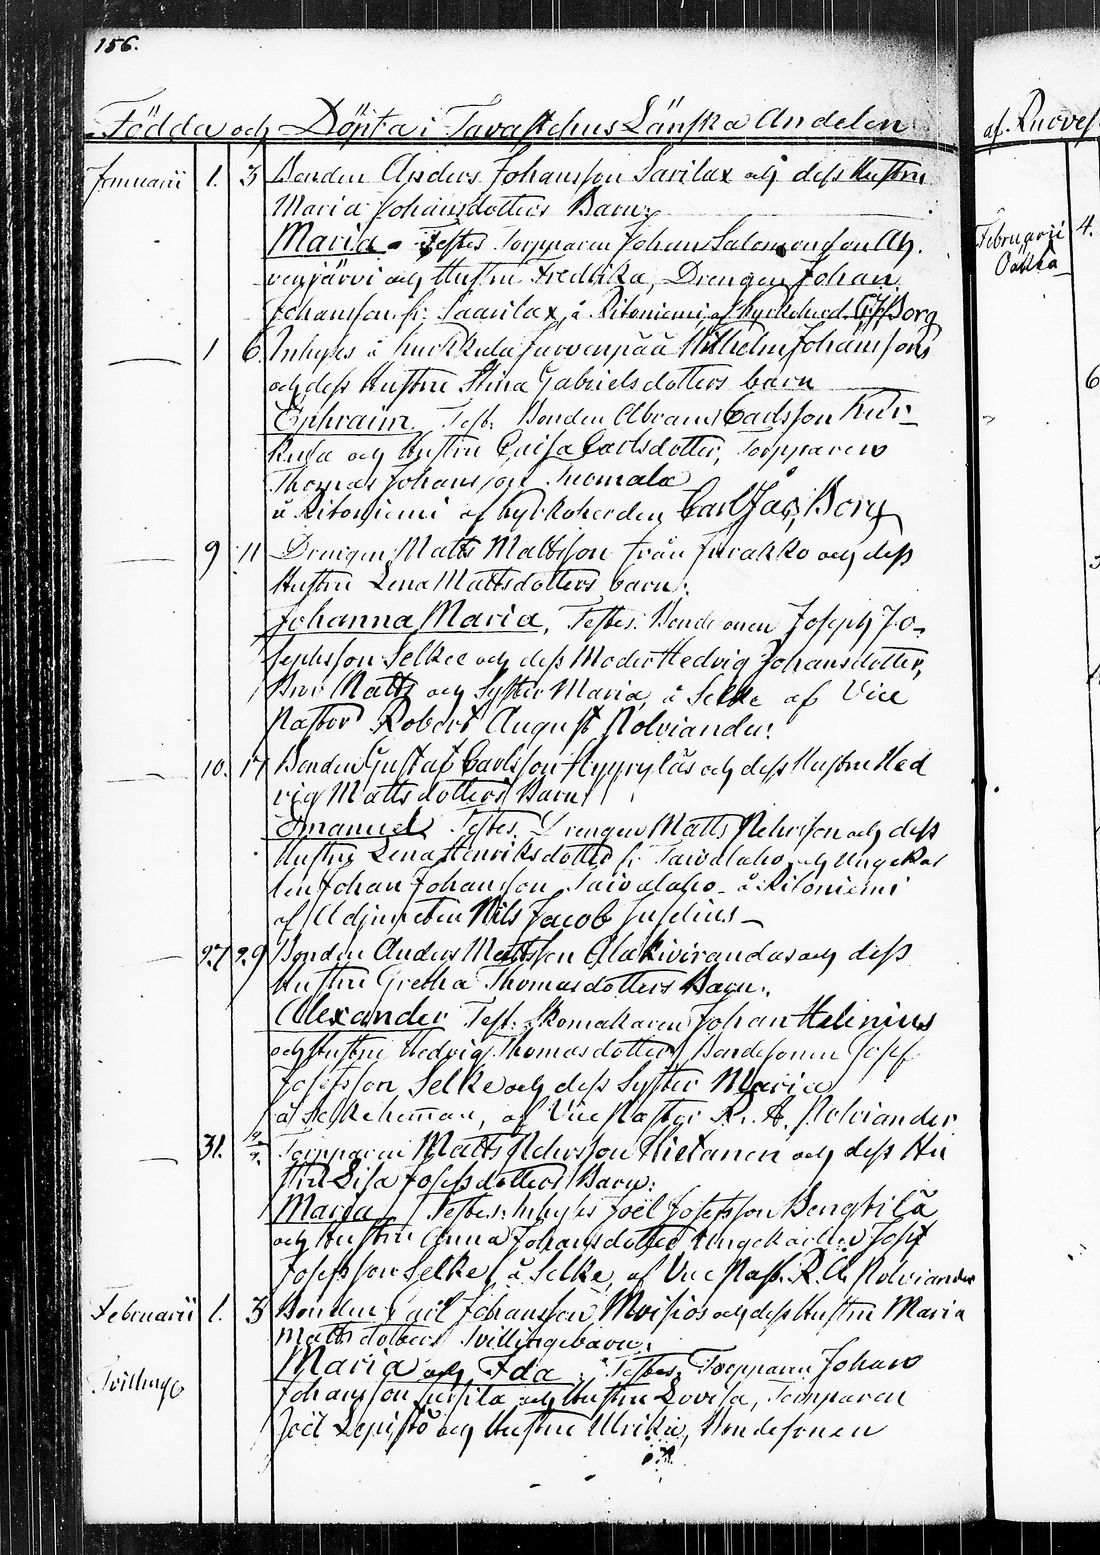 156.
Födda och Döpta i Tavastehus Länska Andelen
af Ruoves
Januarii 1. 3 Bonden Anders Johansson Sarilax och dess Hustru
Maria Johansdotters Barn:
Maria. Testes Torpparen Johan Salomonsson Ah
venjärvi och Hustru Fredrika, Drengen Johan
Johansson fr: Saarilax, å Ritoniemi af Kyrkoherd. C. J. Borg
1 6. Inhyses å Kurkkula Jurvenpää Wilhelm Johanssons
och dess Hustru Stina Gabrielsdotters barn
Ephraim. Test: Bonden Abram Carlsson Kur-
kula och Hustru Caisa Carlsdotter, Torpparen
Thomas Johansson Tuomala
å Ritoniemi af Kyrkoherden Carl Jac. Borg
9 11 Drengen Matts Mattsson från Jurakko och dess
Hustru Lena Mattsdotters barn:
Johanna Maria, Testes: Bondesonen Joseph Jo-
sephsson Selkee och dess Moder Hedvig Johansdotter,
Bror Matts och Syster Maria, å Selke af Vice
Pastor Robert August Polviander.
10. 17 Bonden Gustaf Carlsson Hyyryläs och dess Hustru Hed
vig Matts dotters Barn
Emanuel. Testes. Drengen Matts Pehrsson och dess
Hustru Lena Henriksdotter fr Taivalaho och Ungekar
len Johan Johansson Taivalaho å Ritoniemi
af Adjuncten Nils Jacob Juselius
27 29 Bonden Anders Mattsson Alakivirandas och dess
Hustru Gretha Thomasdotters Barn:
Alexander Test: Skomakaren Johan Helenius
och Hustru Hedvig Thomasdotter, Bondesonen Josef
Josefsson Selke och dess Syster Maria
å Selke hemman, af Vice Pastor R. A. Polviander
31. 2/2. Torpparen Matts Pehrsson Hietanen och dess Hu
stru Lisa Josefsdotters Barn:
Maria Testes: Inhyses Joël Josefsson Bengtilä
och Hustru Anna Johansdotter Ungekarlen Josef
Josefsson Selke, å Selke, af Vice Past. R. A. Polviander
Februarii 1. 3 Bonden Carl Johansson Moisios och dess Hustru Maria
Matts dotters Tvillingebarn:
Tvillingo Maria och Ida. Testes. Torpparen Johan
Johansson Jussila och Hustru Lovisa, Torpparen
Joël Lepistö och Hustru Ulrika, Bondesonen
Februarii 4.
6